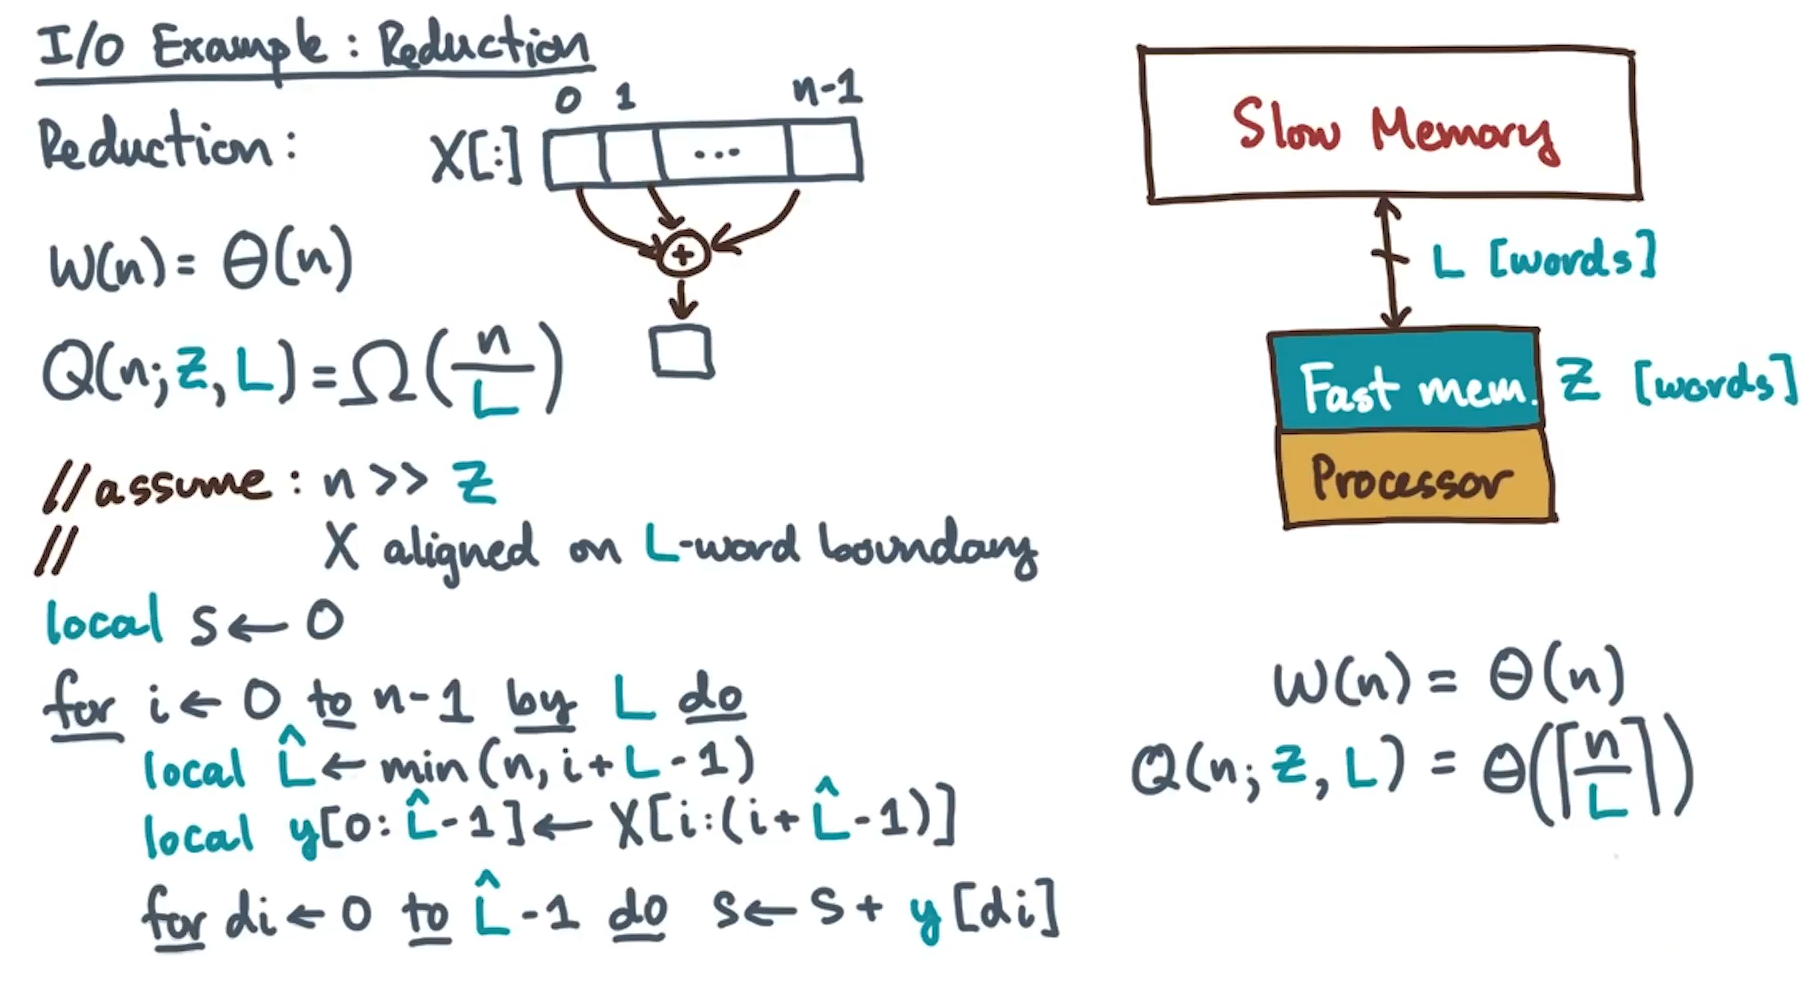 I/O Example: Reduction
Reduction:
X[:]
0 1 n-1
...
+
W(n) = Θ(n)
Q(n; Z, L) = Ω(n/L)
// assume: n >> Z
// X aligned on L-word boundary
local s ← 0
for i ← 0 to n-1 by L do
local L̂ ← min(n, i+L-1)
local y[0:L̂-1] ← X[i:(i+L̂-1)]
for di ← 0 to L̂-1 do s ← s + y[di]
Slow Memory
L [words]
Fast mem. Z [words]
Processor
W(n) = Θ(n)
Q(n; Z, L) = Θ(⌈n/L⌉)